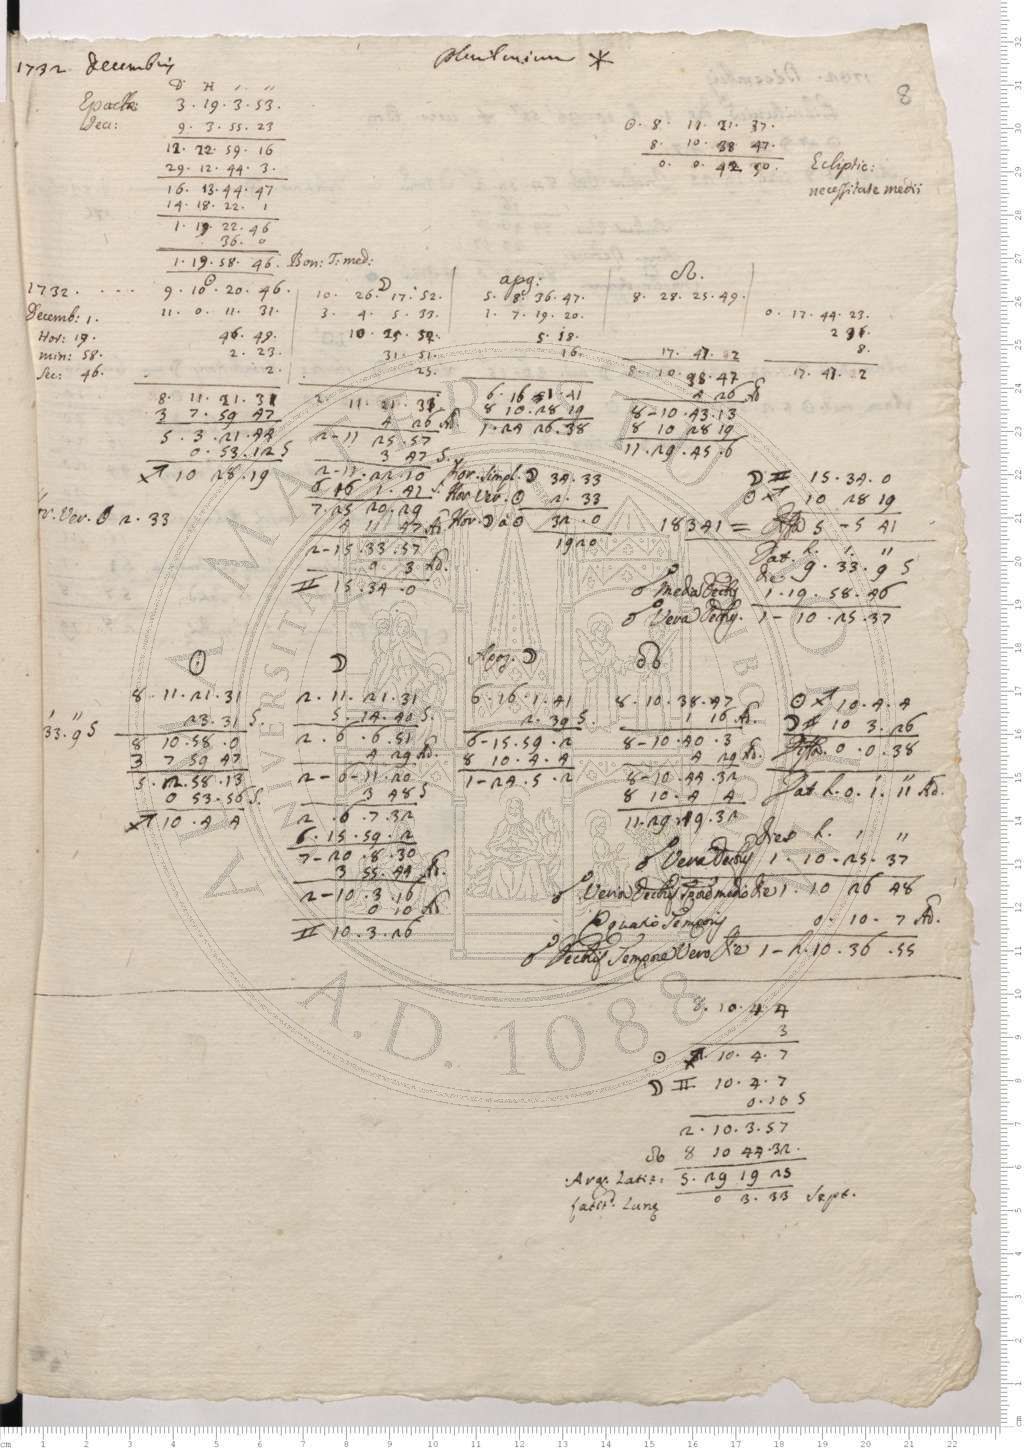 1732 Decembris
Plenilunium *
8
D H ' "
Epactæ 3 · 19 · 3 · 53 ·
Dec: 9 · 3 · 55 · 23
12 · 22 · 59 · 16
29 · 12 · 44 · 3 ·
16 · 13 · 44 · 47
14 · 18 · 22 · 1
1 · 19 · 22 · 46
36 · 0
1 · 19 · 58 · 46 · Bon: T: med:
☉ · 8 · 11 · 21 · 37 ·
8 · 10 · 38 · 47 ·
0 · 0 · 42 · 50 ·
Ecliptic:
necessitate medii
☉ ☽ apg: ☊.
1732 · · · · 9 · 10 · 20 · 46 · 10 · 26 · 17 · 52 · 5 · 8 · 36 · 47 · 8 · 28 · 25 · 49 ·
Decemb: 1 · 11 · 0 · 11 · 31 · 3 · 4 · 5 · 33 · 1 · 7 · 19 · 20 · 0 · 17 · 44 · 23 ·
Hor: 19 · 46 · 49 · 10 · 25 · 52 · 5 · 18 · 2 36 ·
min: 58 · 2 · 23 · 31 · 51 · 16 · 17 · 47 · 2 8 ·
Sec: 46 · 2 · 25 · 8 · 10 · 38 · 47 17 · 47 · 2
8 · 11 · 21 · 31 2 · 11 · 21 · 31 6 · 16 · 1 · 41 4 26 Ad
3 7 · 59 47 4 26 Ad 8 10 · 28 19 8 - 10 · 43 · 13
5 · 3 · 21 · 44 2 - 11 25 · 57 1 · 24 26 · 38 8 10 28 19
0 · 53 · 12 S 3 47 S. 11 · 29 · 45 · 6
♐ 10 28 · 19 2 - 11 · 22 · 10 Hor. Simpl. ☽ 34 · 33 ☽ ♊ 15 · 34 · 0
6 16 1 · 41 Hor. Ver. ☉ 2 · 33 ☉ ♐ 10 28 19
7 · 25 20 · 29 Hor ☽ à ☉ 32 · 0 18341 = Diffa 5 - 5 41
Hor. Ver. ☉ 2 · 33 4 11 47 Ad. 1920
2 - 15 · 33 · 57 Dat. h. ' "
0 · 3 Ad. De 9 · 33 · 9 S
♊ 15 · 34 · 0 ☍ Media Decbris 1 · 19 · 58 · 46
☍ Vera Decbris 1 - 10 · 25 · 37
☉ ☽ Apog. ☽ ☊
8 · 11 · 21 · 31 2 · 11 · 21 · 31 6 · 16 · 1 · 41 8 · 10 · 38 · 47 ☉ ♐ 10 · 4 · 4
33 · 9 S 23 · 31 S. 5 · 14 · 40 S. 2 · 39 S. 1 16 Ad. ☽ ♊ 10 3 · 26
8 10 · 58 · 0 2 · 6 · 6 · 51 6 - 15 · 59 · 2 8 - 10 · 40 · 3 Diffa. 0 · 0 · 38
3 7 59 47 4 29 Ad. 8 10 · 4 · 4 4 29 Ad.
5 · 2 · 58 · 13 2 - 6 - 11 · 20 1 - 24 · 5 · 2 8 - 10 · 44 · 32 Dat h. 0 · 1 · 11 Ad.
0 53 · 56 S. 3 48 S 8 10 · 4 4
♐ 10 · 4 4 2 · 6 · 7 · 32 11 · 29 · 19 · 32
6 · 15 · 59 · 2 Dies h. ' "
7 - 20 · 8 · 30 ☍ Vera Decbris 1 · 10 · 25 · 37
3 55 · 44 Ad.
2 - 10 · 3 · 16 ☍ Vera Decbris Tpre medio De 1 · 10 26 48
0 10 Ad Æquatio Temporis 0 · 10 · 7 Ad.
♊ 10 · 3 · 26 ☍ Decbris Tempore Vero De 1 - h. 10 · 36 · 55
8 · 10 · 4 · 4
3
☉ ♐ · 10 · 4 · 7
☽ ♊ 10 · 4 · 7
0 · 10 S
2 · 10 · 3 · 57
☊ 8 10 44 · 32 ·
Arg. Latit: 5 · 29 19 25
Latit. Lunę 0 3 · 33 Sept.
ALMA MATER STUDIORUM
UNIVERSITAS
BONONIENSIS
A.D. 1088